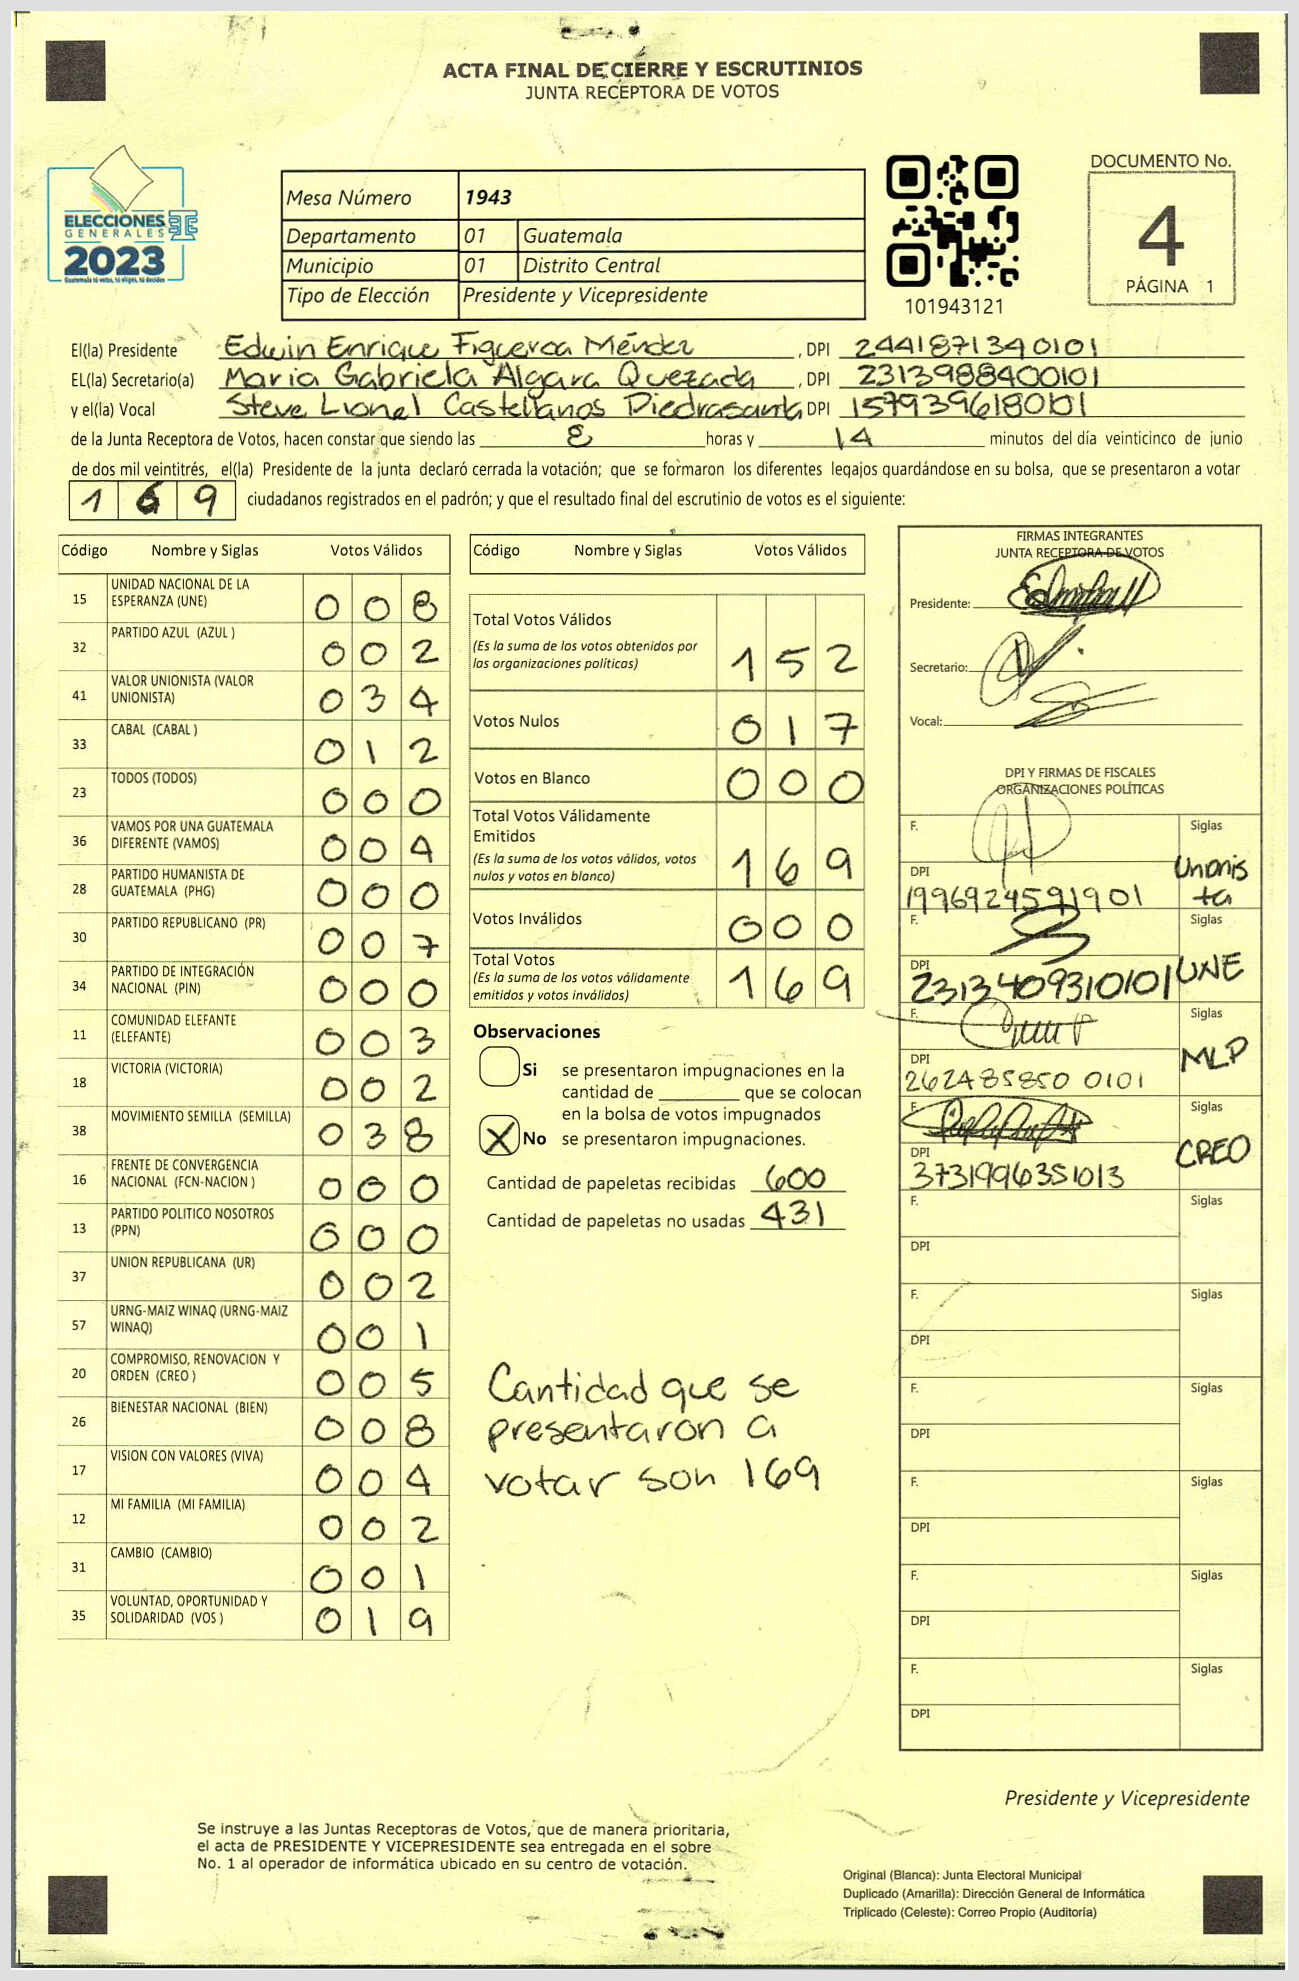 ACTA FINAL DE CIERRE Y ESCRUTINIOS
JUNTA RECEPTORA DE VOTOS
ELECCIONES
GENERALES
2023
Guatemala tú votas, tú eliges, tú decides
Mesa Número 1943
Departamento 01 Guatemala
Municipio 01 Distrito Central
Tipo de Elección Presidente y Vicepresidente
101943121
DOCUMENTO No.
4
PÁGINA 1
El(la) Presidente Edwin Enrique Figueroa Méndez, DPI 2441871340101
EL(la) Secretario(a) Maria Gabriela Algara Quezada, DPI 2313988400101
y el(la) Vocal Steve Lionel Castellanos Piedrasanta DPI 1579396180101
de la Junta Receptora de Votos, hacen constar que siendo las 8 horas y 14 minutos del día veinticinco de junio
de dos mil veintitrés, el(la) Presidente de la junta declaró cerrada la votación; que se formaron los diferentes legajos guardándose en su bolsa, que se presentaron a votar
169 ciudadanos registrados en el padrón; y que el resultado final del escrutinio de votos es el siguiente:
Código Nombre y Siglas Votos Válidos
15 UNIDAD NACIONAL DE LA
ESPERANZA (UNE) 008
32 PARTIDO AZUL (AZUL ) 002
41 VALOR UNIONISTA (VALOR
UNIONISTA) 034
33 CABAL (CABAL ) 012
23 TODOS (TODOS) 000
36 VAMOS POR UNA GUATEMALA
DIFERENTE (VAMOS) 004
28 PARTIDO HUMANISTA DE
GUATEMALA (PHG) 000
30 PARTIDO REPUBLICANO (PR) 007
34 PARTIDO DE INTEGRACIÓN
NACIONAL (PIN) 000
11 COMUNIDAD ELEFANTE
(ELEFANTE) 003
18 VICTORIA (VICTORIA) 002
38 MOVIMIENTO SEMILLA (SEMILLA) 038
16 FRENTE DE CONVERGENCIA
NACIONAL (FCN-NACION ) 000
13 PARTIDO POLITICO NOSOTROS
(PPN) 000
37 UNION REPUBLICANA (UR) 002
57 URNG-MAIZ WINAQ (URNG-MAIZ
WINAQ) 001
20 COMPROMISO, RENOVACION Y
ORDEN (CREO ) 005
26 BIENESTAR NACIONAL (BIEN) 008
17 VISION CON VALORES (VIVA) 004
12 MI FAMILIA (MI FAMILIA) 002
31 CAMBIO (CAMBIO) 001
35 VOLUNTAD, OPORTUNIDAD Y
SOLIDARIDAD (VOS ) 019
Código Nombre y Siglas Votos Válidos
Total Votos Válidos
(Es la suma de los votos obtenidos por
las organizaciones políticas) 152
Votos Nulos 017
Votos en Blanco 000
Total Votos Válidamente
Emitidos
(Es la suma de los votos válidos, votos
nulos y votos en blanco) 169
Votos Inválidos 000
Total Votos
(Es la suma de los votos válidamente
emitidos y votos inválidos) 169
Observaciones
Si se presentaron impugnaciones en la
cantidad de ________ que se colocan
en la bolsa de votos impugnados
X No se presentaron impugnaciones.
Cantidad de papeletas recibidas 600
Cantidad de papeletas no usadas 431
Cantidad que se
presentaron a
votar son 169
FIRMAS INTEGRANTES
JUNTA RECEPTORA DE VOTOS
Presidente:
Secretario:
Vocal:
DPI Y FIRMAS DE FISCALES
ORGANIZACIONES POLÍTICAS
F. Siglas
Unionis
ta
DPI
1996924591901
F. Siglas
UNE
DPI
2313409310101
F. Siglas
MLP
DPI
2624858500101
F. Siglas
CREO
DPI
3731996351013
F. Siglas
DPI
F. Siglas
DPI
F. Siglas
DPI
F. Siglas
DPI
F. Siglas
DPI
F. Siglas
DPI
Presidente y Vicepresidente
Se instruye a las Juntas Receptoras de Votos, que de manera prioritaria,
el acta de PRESIDENTE Y VICEPRESIDENTE sea entregada en el sobre
No. 1 al operador de informática ubicado en su centro de votación.
Original (Blanca): Junta Electoral Municipal
Duplicado (Amarilla): Dirección General de Informática
Triplicado (Celeste): Correo Propio (Auditoría)